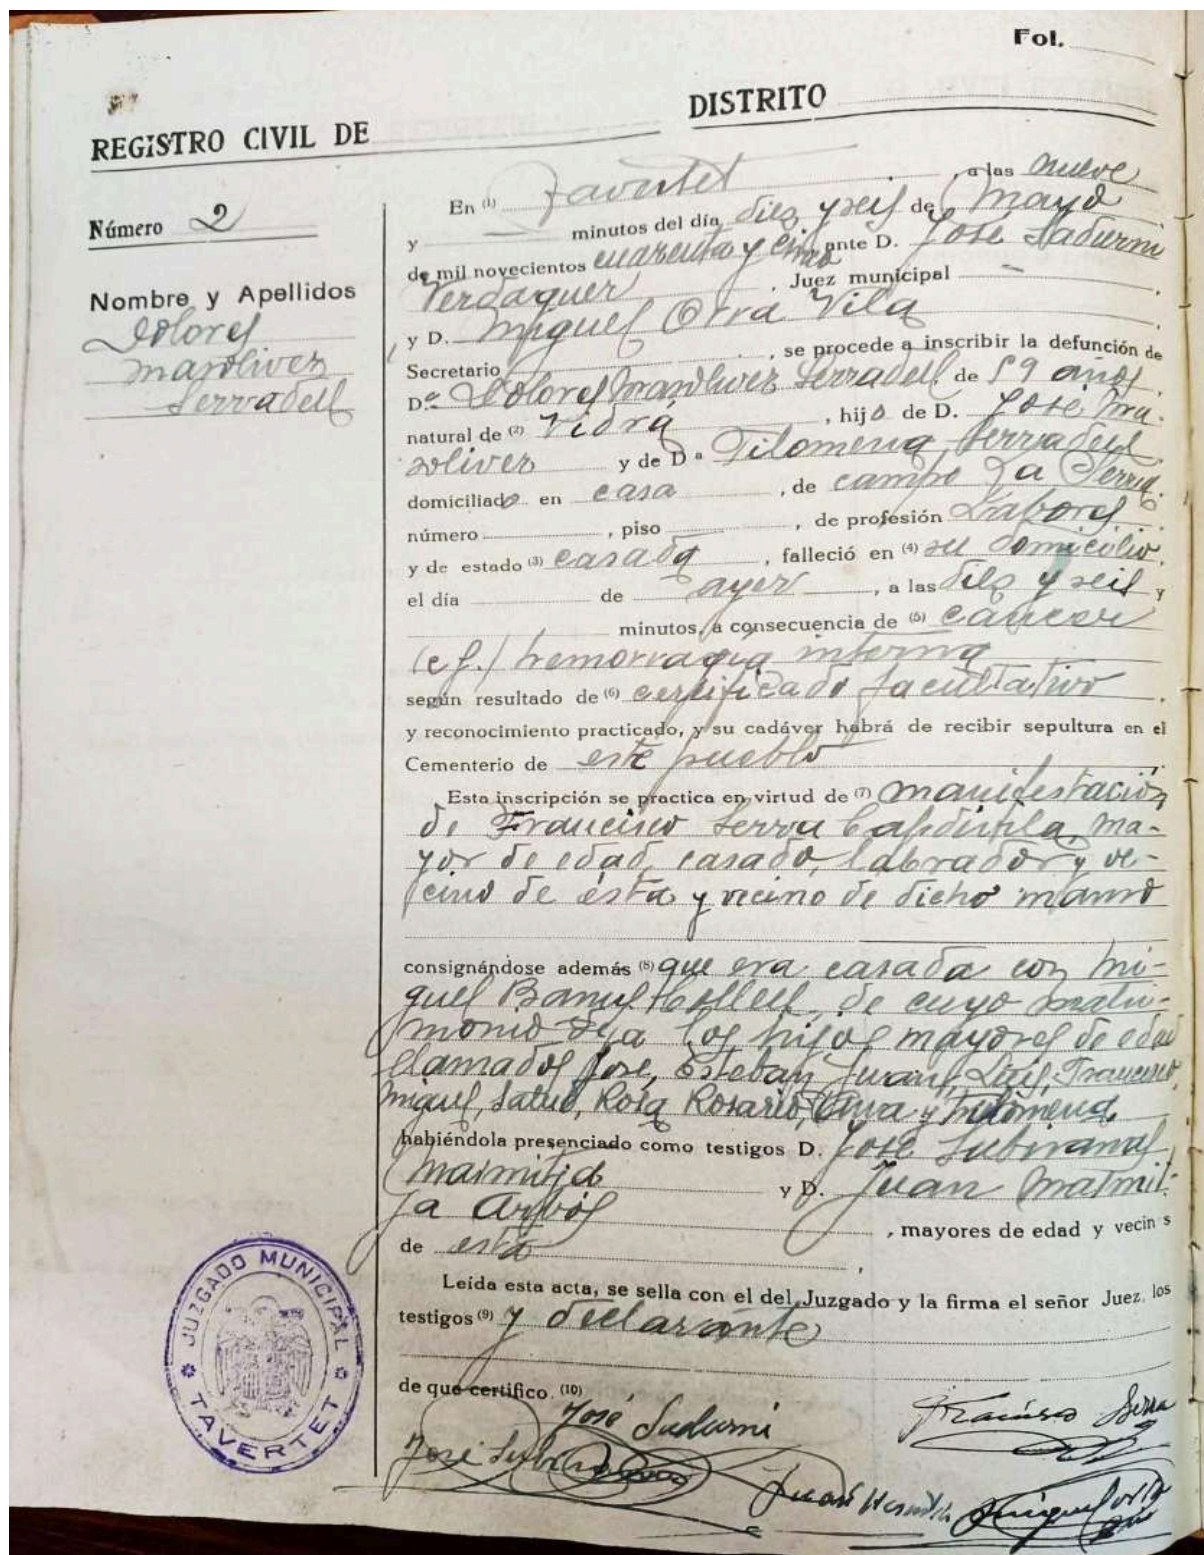 Fol.
REGISTRO CIVIL DE DISTRITO
Número 2
Nombre y Apellidos
Dolores
Masoliver
Serradell
En (1) Tavertet, a las nueve
y minutos del día diez y seis de Mayo
de mil novecientos cuarenta y cinco ante D. José Sadurní
Verdaguer, Juez municipal
y D. Miguel Orra Vila
Secretario, se procede a inscribir la defunción de
D.ª Dolores Masoliver Serradell de 59 años,
natural de (2) Vidrá, hija de D. José Ma-
soliver y de Dª Filomena Serradell
domiciliada en casa, de campo La Serra
número, piso, de profesión Labores
y de estado (3) casada, falleció en (4) su domicilio,
el día de ayer, a las diez y seis y
minutos, a consecuencia de (5) cáncer
hemorragia interna
según resultado de (6) certificado facultativo
y reconocimiento practicado, y su cadáver habrá de recibir sepultura en el
Cementerio de este pueblo
Esta inscripción se practica en virtud de (7) manifestación
de Francisco Serra, ma-
yor de edad, casado, labrador y ve-
cino de ésta y vecino de dicho manso
consignándose además (8) que era casada con Mi-
guel Banús Collell, de cuyo matri-
monio deja los hijos mayores de edad
llamados José, Esteban, Juan, Luis, Francisco,
Miguel, Salud, Rosa, Rosario, y Filomena
habiéndola presenciado como testigos D. José Subiranas
Marmitjá y D. Juan Marmit-
já Arbós, mayores de edad y vecin s
de ésta,
Leída esta acta, se sella con el del Juzgado y la firma el señor Juez, los
testigos (9) y declarante
de que certifico. (10)
José Sadurní
Francisco Serra
José Subiranas
Juan
Miguel
JUZGADO MUNICIPAL
TAVERTET